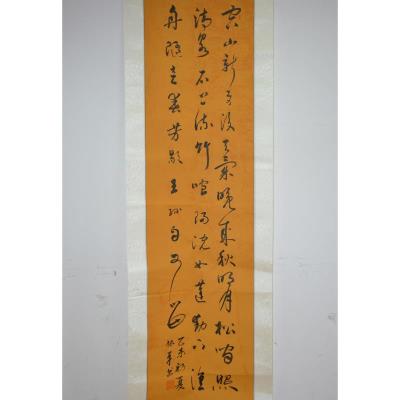 空山新雨後天氣晚來秋明月松間照
清泉石上流竹喧歸浣女蓮動下漁
舟隨意春芳歇王孫自可留
乙未初夏